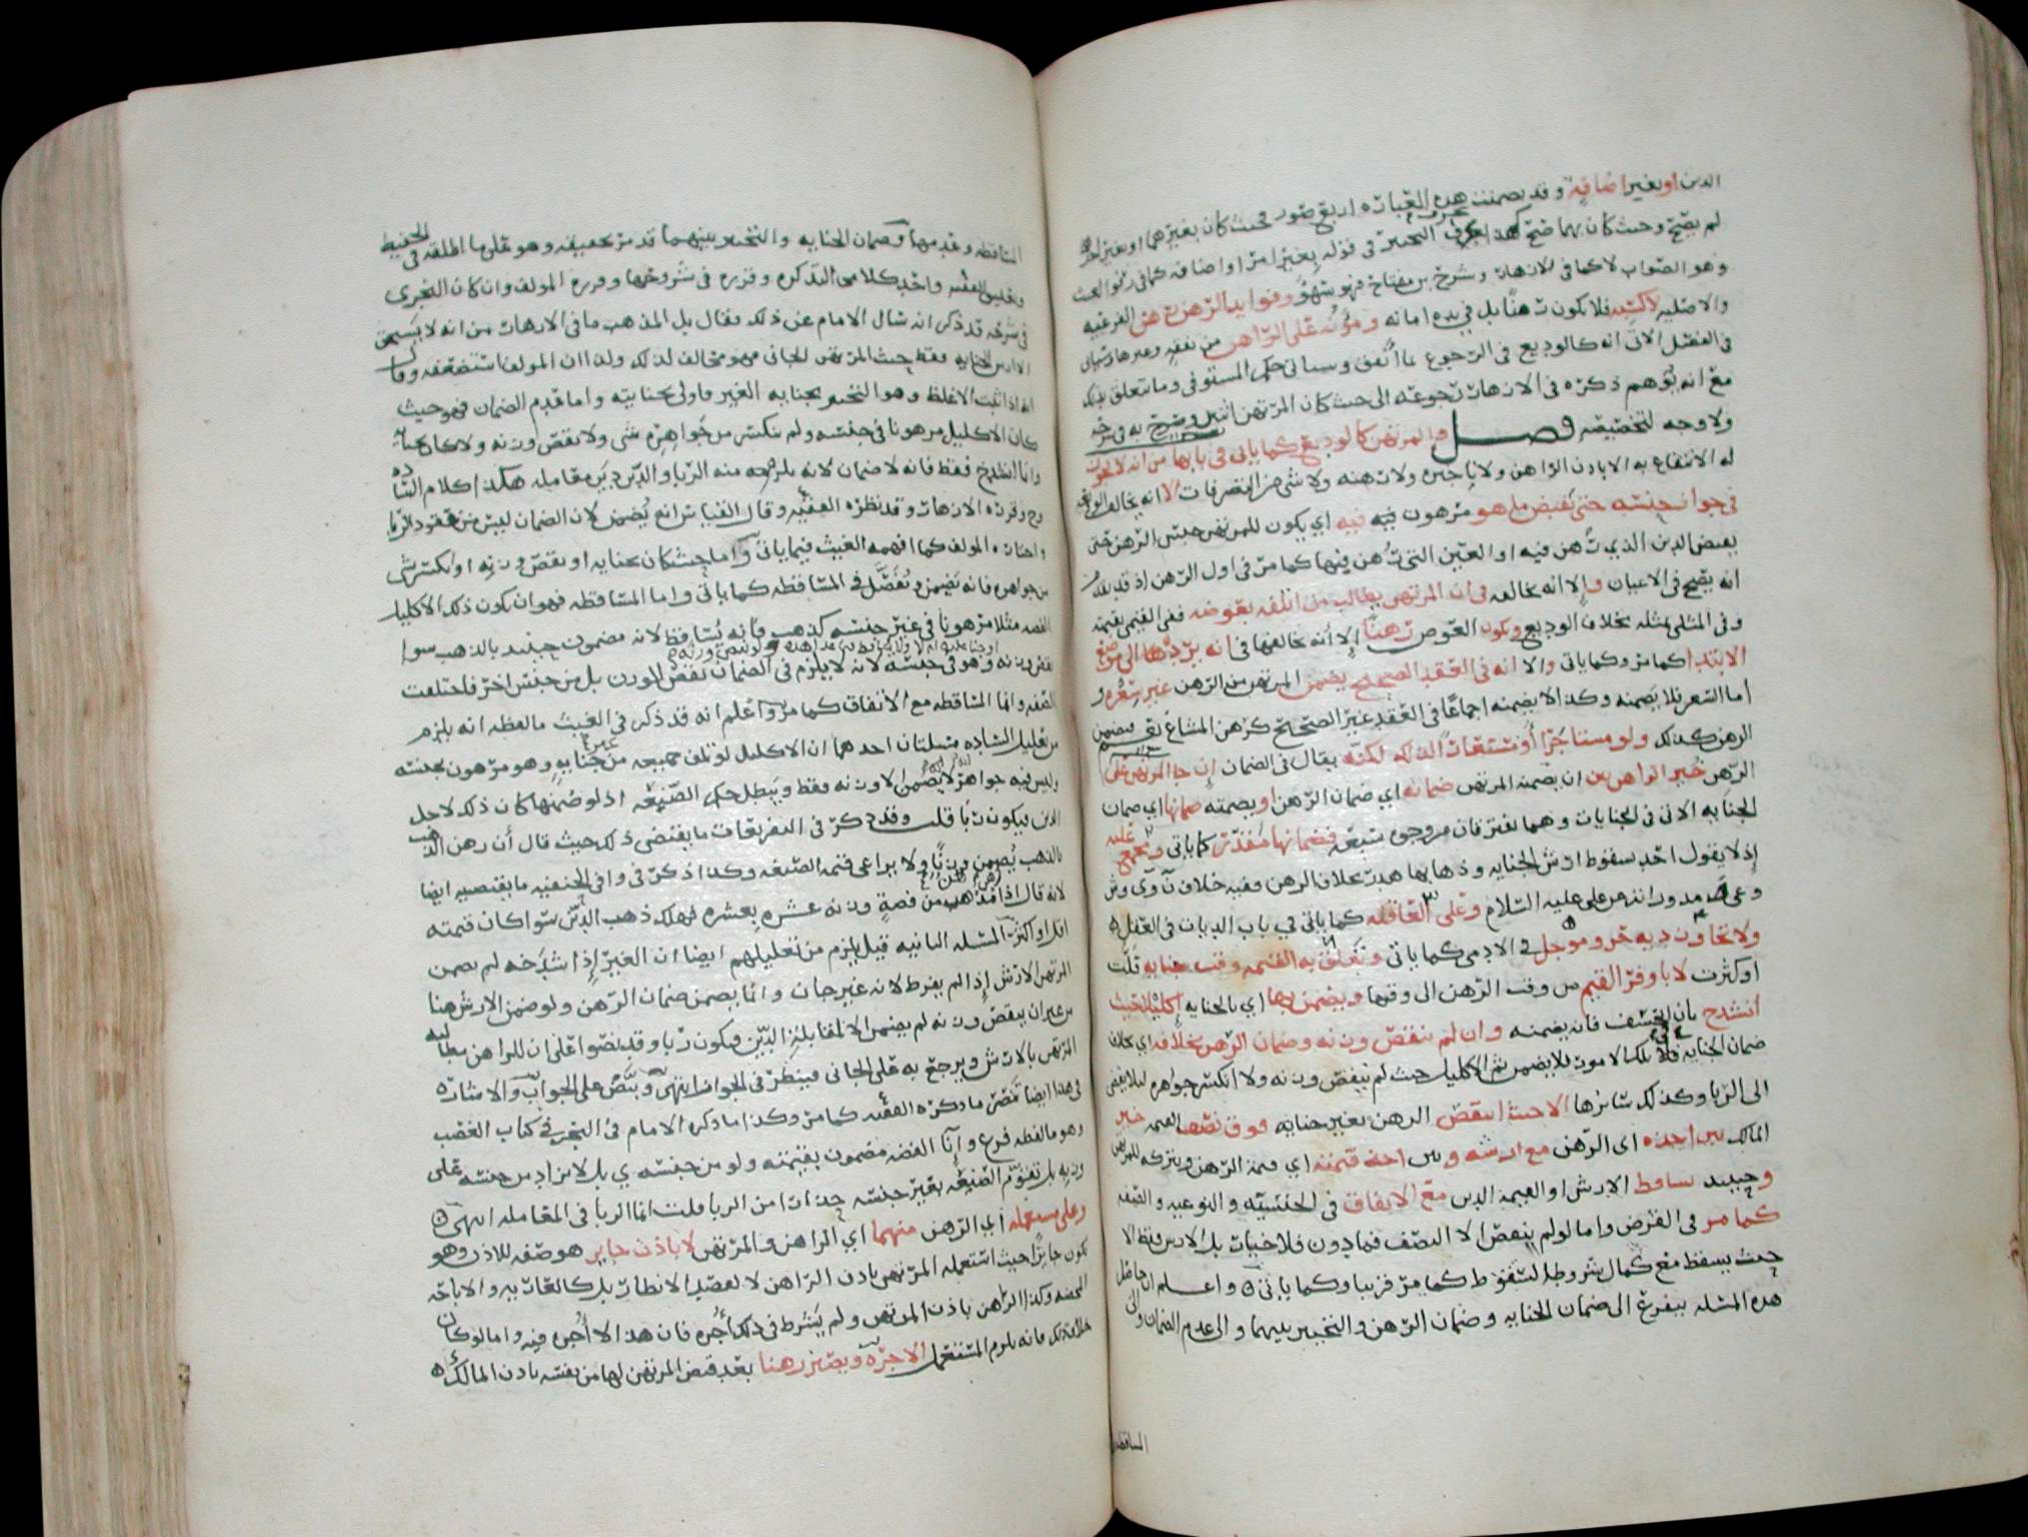 الدين او بغير اضافة وقد تضمنت هذه العبارة اربع صور فحيث كان بغيرهما او بغير احدهما
لم يصح وحيث كان بهما صح كهذا يعرف التخيير في قوله بغير امرا او اضافه كما في الغيث
وهو الصواب لا كما في الازهار وشرح بن مفتاح فهو سهو وفوايد الرهن رهن الفرعيه
والاصليه لا كسبه فلا يكون رهنا بل في يده امانه ومؤنه على الراهن من نفقه وغيرها وسياتي
في الفصل الاتي انه كالوديع في الرجوع بما انفق وسياتي حكم المستوفى وما يتعلق بذلك
مع انه يوهم ذكره في الازهار رجوعه الى حيث كان المرتهن اثنين وصرح به في شرحه
ولا وجه لتخصيصه فصل والمرتهن كالوديع كما ياتي في بابها من انه لا يجوز
له الانتفاع به الا باذن الراهن ولا تاجيره ولا رهنه ولا شي من التصرفات الا انه يخالف الوديعه
في جواز حبسه حتى يقبض ما هو مرهون فيه اي يكون للمرتهن حبس الرهن حتى
يقبض الدين الذي رهن فيه او العين التي رهن فيها كما مر في اول الرهن اذ قد تقدم
انه يصح في الاعيان والا انه يخالفه في ان المرتهن يطالب من اتلفه بعوضه ففي القيمي بقيمته
وفي المثلي بمثله بخلاف الوديع ويكون العوض رهنا الا انه يخالفها في انه يردها الى موضع
الابتدا كما مر وكما ياتي والا انه في العقد الصحيح يضمن المرتهن من الرهن غير سعره و
اما السعر فلا يضمنه وكذا لا يضمنه اجماعا في العقد غير الصحيح كرهن المشاع فيضمن
الرهن كذلك ولو مستاجرا او مستعارا لذلك لكنه يقال في الضمان ان جنا المرتهن على
الرهن خير الراهن بين ان يضمنه المرتهن ضمانه اي ضمان الرهن او يضمنه ضمانها اي ضمان
الجنايه الاتي في الجنايات وهما يفترقان من وجوه سبعه فضمانها مقدر كما ياتي
اذ لا يقول احد بسقوط ارش الجنايه وذهابها هدر بخلاف الرهن وفيه خلاف
عليه السلام وعلى العاقله كما ياتي في باب الديات في العقل
ولا تجاوز ديه حر ومؤجل في الادمي كما ياتي وتتعلق به القيمه وقت جنايه قلت
او كثرت لا باوفر القيم من وقت الرهن الى وقتها ويضمن بها اي بالجنايه اكليلا بحيث
انشدخ بان انخسف فانه يضمنه وان لم ينقص وزنه وضمان الرهن بخلافه اي بخلاف
ضمان الجنايه في تلك الامور فلا يضمن ثم الاكليل حيث لم ينقص وزنه ولا انكسر جواهره ليلا يفضي
الى الربا وكذلك سائرها الا حيث انتقض الرهن بغير جنايه فوق نصف القيمه خير
المالك بين اخذه اي الرهن مع ارشه وبين اخذ قيمته اي قيمة الرهن ويتركه للمرتهن
وحينيذ يساقط الارش او القيمه الدين مع الاتفاق في الجنسيه والنوعيه والصفه
كما مر في القرض واما لو لم ينقص الا النصف فما دون فلا خيار بل الارش فقط الا
حيث يسقط مع كمال شروط السقوط كما مر قريبا وكما ياتي واعلم ان حاصل
هذه المسئله يتفرع الى ضمان الجنايه وضمان الرهن والتخيير بينهما والى عدم الضمان والى
المساقطه
المساقطه وعدمها وضمان الجنايه والتخيير بينهما قد مر تحقيقه وهو على ما اطلقه في الحفيظ
وتعليق الفقيه واخذ كلامي التذكره وقرره في شروحها وقرره المولف وان كان النجري
في شرحه قد ذكر انه سال الامام عن ذلك فقال بل المذهب ما في الازهار من انه لا يضمن
الا ارش الجنايه فقط حيث المرتهن الجاني فهو مخالف لذلك ولذا ان المولف استضعفه وقال
انه اذا ثبت الاغلظ وهو التخيير بجنايه الغير فاولى بجنايته واما عدم الضمان فهو حيث
كان الاكليل مرهونا في جنسه ولم ينكسر من جواهره شي ولا نقص وزنه ولا كان بجنايه
وانما انشدخ فقط فانه لا ضمان لانه يلزم منه الربا والدين دين معامله هكذا كلام الساده
وقرره الازهار وقد نظره الفقيه وقال القياس انه يضمن لان الضمان ليس من عقود الربا
واختاره المولف كما افهمه الغيث فيما ياتي واما حيث كان بجنايه او نقص وزنه او انكسر شي
من جواهره فانه يضمن ويفصل في المساقطه كما ياتي واما المساقطه فهو ان يكون ذلك الاكليل
الفضه مثلا مرهونا في غير جنسه كذهب فانه يساقط لانه مضمون حينيذ بالذهب سوا
نقص وزنه وهو في جنسه لانه لا يلزم في الضمان نقص الوزن بل من جنس اخر فاختلفت
الصفه وانما المساقطه مع الاتفاق كما مر واعلم انه قد ذكر في الغيث ما لفظه انه يلزم
من تعليل الساده مسئلتان احدهما ان الاكليل لو تلف جميعه من غير جنايه وهو مرهون بجنسه
وليس فيه جواهر لا يضمن الا وزنه فقط ويبطل حكم الصنعه اذ لو ضمنها كان ذلك لاجل
الدين فيكون ربا قلت وقد ذكر في التفريعات ما يقتضي ذلك حيث قال ان رهن الذهب
بالذهب يضمن وزنا ولا يراعى قيمه الصنعه وكذا ذكر في وافي الحنفيه ما يقتضيه ايضا
لانه قال اذا رهن من فضة وزنه عشره بعشره فهلك ذهب الدين سوا كان قيمته
اقل او اكثر المسئله الثانيه قيل يلزم من تعليلهم ايضا ان الغير اذا شدخه لم يضمن
المرتهن الارش اذا لم يفرط لانه غير جان وانما يضمن ضمان الرهن ولو ضمن الارش هنا
من غير ان ينقص وزنه لم يضمن الا لمقابله الدين فيكون ربا وقد نصوا على ان للراهن مطالبه
المرتهن بالارش ويرجع به على الجاني فينظر في الجواب انتهى وينص على الجواب والاشاره
في هذا ايضا نص ما ذكره الفقيه كما مر وكذا ما ذكره الامام في البحر في كتاب الغصب
وهو ما لفظه فرع وآنا الفضه مضمون بقيمته ولو من جنسه ي بل لا يزاد من جنسه على
وزنه بل تقوم الصنعه بغير جنسه حذارا من الربا قلت انما الربا في المعامله انتهى
وعلى مستعمله اي الرهن منهما اي الراهن والمرتهن لا باذن جاير هو صفه للاذن وهو
يكون جايزا حيث استعمله المرتهن باذن الراهن لا لقصد الانظار بل كالعاريه والاباحه
المحضه وكذا الراهن باذن المرتهن ولم يشرط في ذلك اجره فان هذا لا اجره فيه واما لو كان
خلاف ذلك فانه يلزم المستعمل الاجره ويصير رهنا بعد قبض المرتهن لها من نفسه باذن المالك